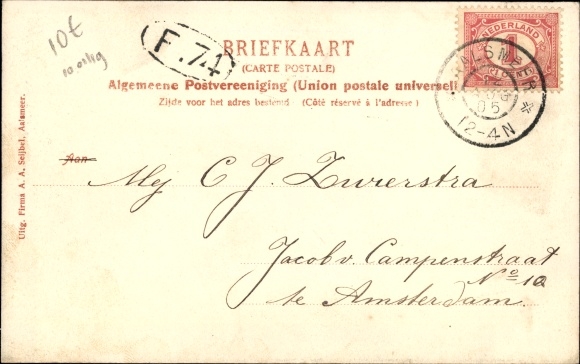 10€
F. 74
BRIEFKAART
(CARTE POSTALE)
Algemeene Postvereeniging (Union postale universell
Zijde voor het adres bestemd (Côté réservé à l'adresse)
NEDERLAND
1
AALSMEER
05
12-4N
Uitg. Firma A. A. Seijbel, Aalsmeer.
Aan
Mej C J. Zwierstra
Jacob v. Campenstraat
No 10
te Amsterdam.